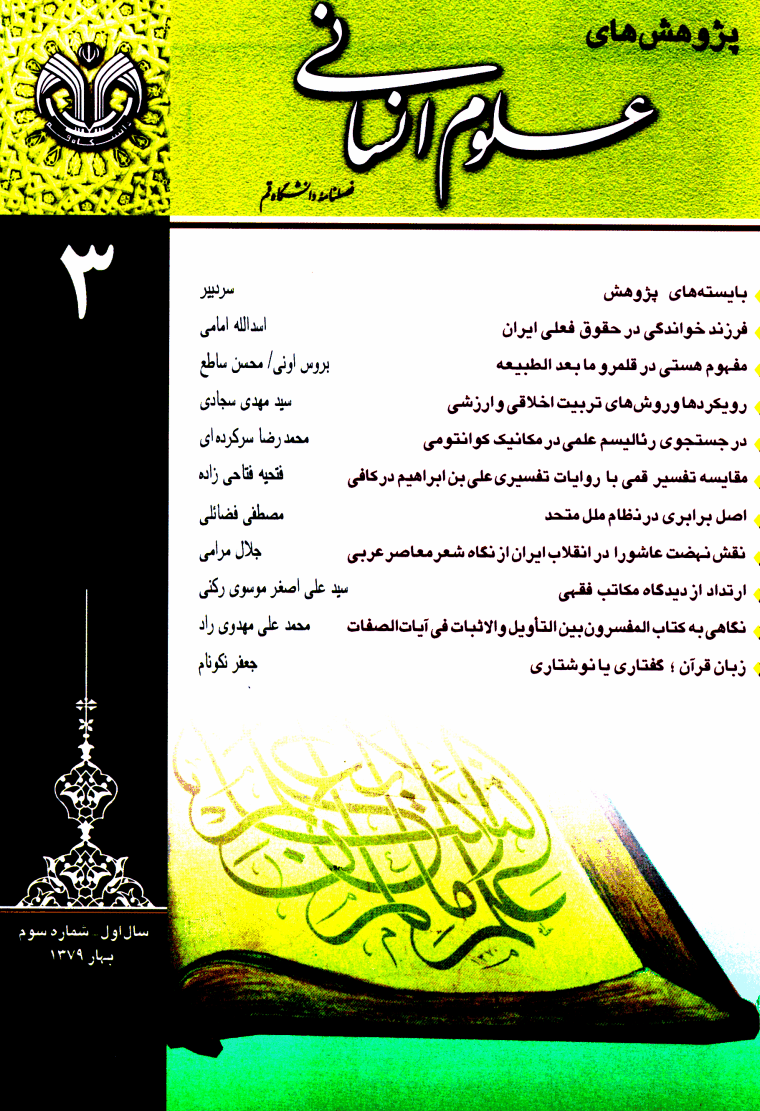 پژوهش‌های
علوم انسانی
فصلنامه دانشگاه قم
۳
بایسته‌های پژوهش سردبیر
فرزند خواندگی در حقوق فعلی ایران اسدالله امامی
مفهوم هستی در قلمرو ما بعد الطبیعه بروس اونی/ محسن ساطع
رویکردها و روش‌های تربیت اخلاقی و ارزشی سید مهدی سجادی
در جستجوی رئالیسم علمی در مکانیک کوانتومی محمد رضا سرکرده‌ای
مقایسه تفسیر قمی با روایات تفسیری علی بن ابراهیم در کافی فتحیه فتاحی زاده
اصل برابری در نظام ملل متحد مصطفی فضائلی
نقش نهضت عاشورا در انقلاب ایران از نگاه شعر معاصر عربی جلال مرامی
ارتداد از دیدگاه مکاتب فقهی سید علی اصغر موسوی رکنی
نگاهی به کتاب المفسرون بین التأویل والاثبات فی آیات الصفات محمد علی مهدوی راد
زبان قرآن ؛ گفتاری یا نوشتاری جعفر نکونام
علم الانسان ما لم یعلم
سال اول ـ شماره سوم
بهار ۱۳۷۹